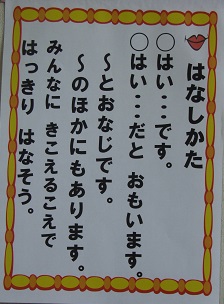 はなしかた
○はい・・・です。
○はい・・・だと おもいます。
～とおなじです。
～のほかにもあります。
みんなに きこえるこえで
はっきり はなそう。